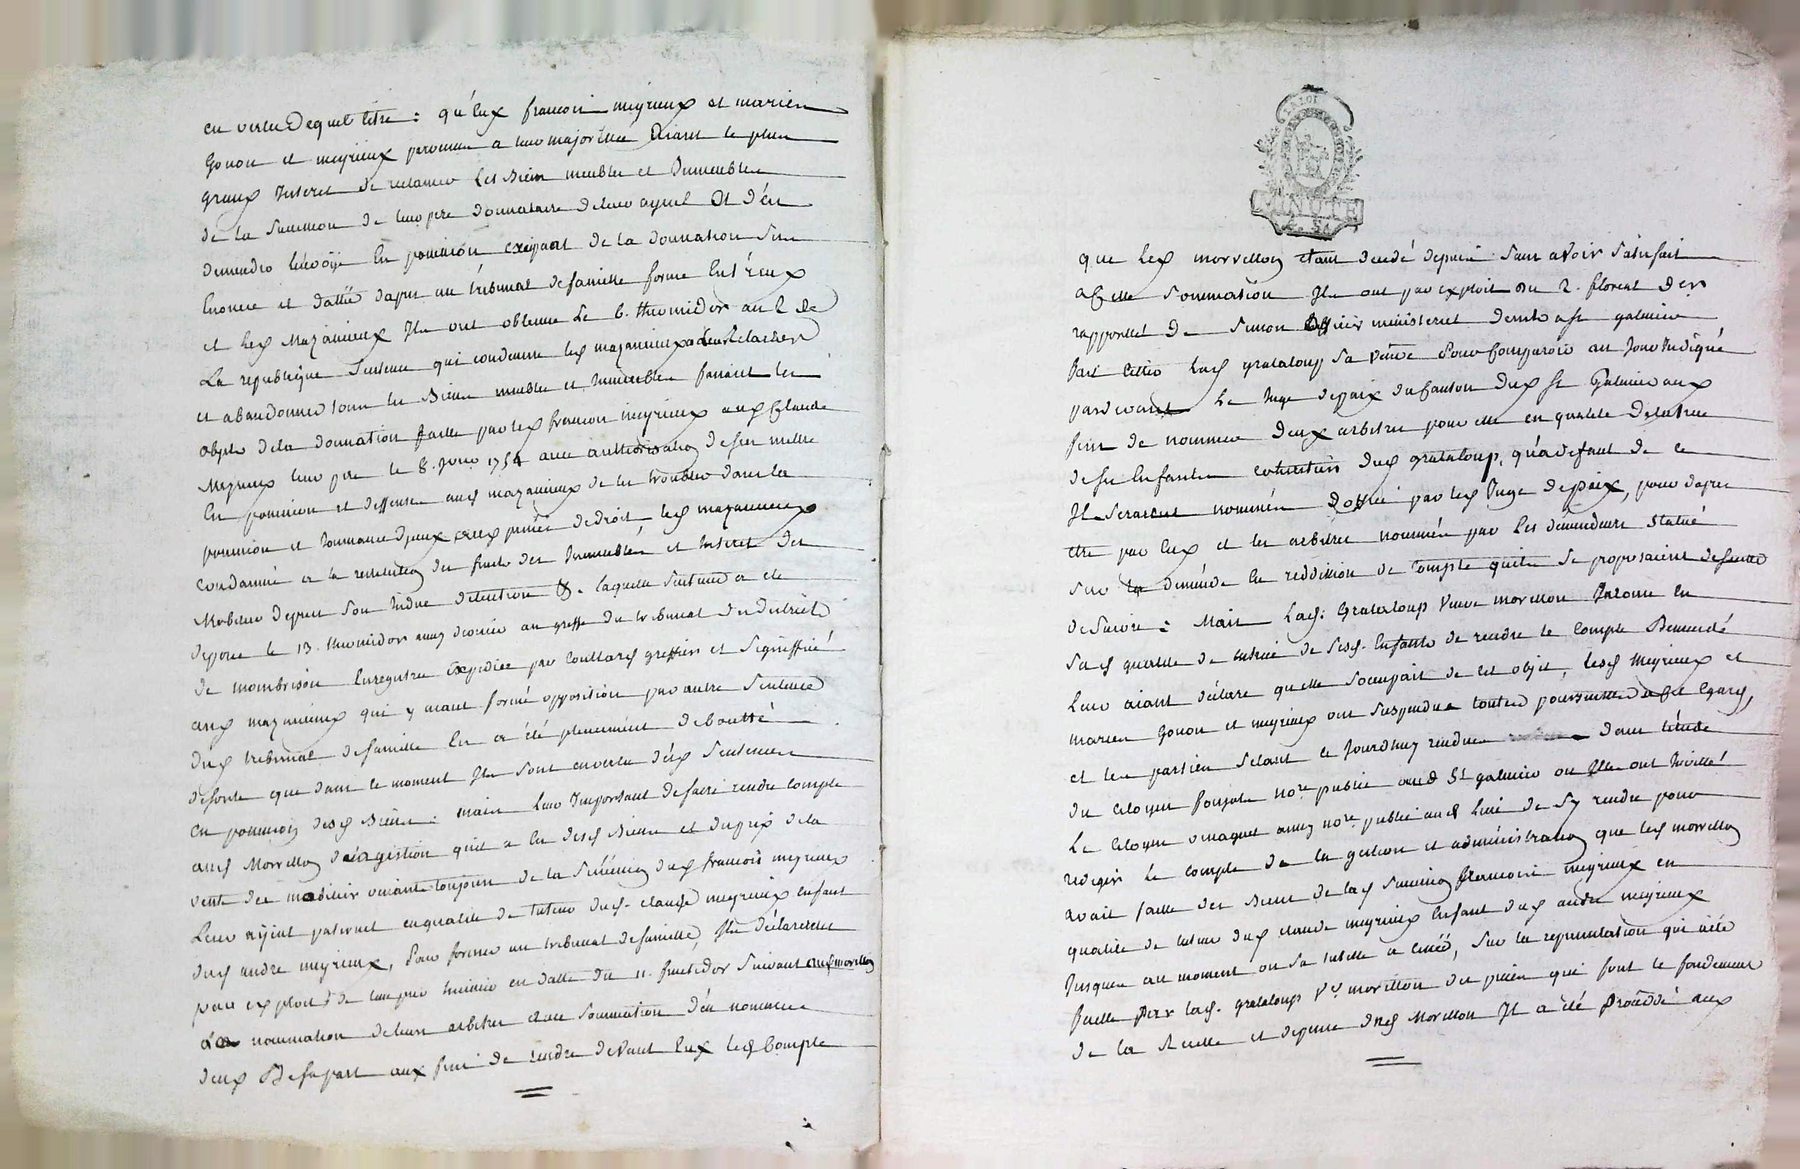 en vertu de quel titre : qu'eux francois meyrieux et marien
Gonon et meyrieux parvenu a leur majorité aiant le plus
grand Interet de reclamer les Biens meubles et Immeubles
de la succession de leur pere donnataire de leur ayeul et d'en
demander l'envoÿe en possession exipant de la donnation sus
Enoncée et dattée dapres un tribunal de famille formé Entreux
et les Mazanieux Ils ont obtenue le 6. thermidor an 2 de
La republique sentence qui condamne les mazanieux a leur relacher
et abandonner tous les Biens meubles et Immeubles faisant les
objets de la donnation faitte par led francois meyrieux aud Claude
Meyrieux leur pere le 8. Juin 1754 avec authorisation de sen mettre
En possession et deffenses auxd mazanieux de les troubler dans la
possession et Jouissance dyceux sous peines de droit, les mazanieux
condamné a la restitution des fruits des Immeubles et Interet des
Mobilier depuis son Indue detention &. laquelle sentence a ete
deposée le 13. thermidor meme année au greffe du tribunal du district
de montbrison Enregistrée Expediée par Coullard greffier et signiffiée
aux mazanieux qui y aiant formé opposition par autre sentence
dud tribunal de famille En a été pleinement deboutté
de sorte que dans le moment Ils sont en vertu d'és sentences
En possession desd Biens : mais leur Important de faire rendre compte
aud Morvillon de la gestion quil a eu desd Biens et du prix de la
vente des mobilier venant toujours de la succession dud francois meyrieux
Leur ayeul paternel en qualité de tuteur dud. claude meyrieux enfant
dud andre meyrieux, Pour former un tribunal de famille, Ils déclarerent
par exploit de huissier en datte du 11. fructidor suivant aud morvillon
La nomination de leurs arbitres avec sommation d'en nommer
deux De sa part aux fins de rendre devant Eux led Compte
MINUTE
que led morvillon etant decedé depuis sans avoir satisfait
a cette sommation Ils ont par exploit du 2. floreal der
rapporté de Simon officier ministeriel demt a st galmier
fait citter lad grataloup sa veuve Pour Comparoir au Jour Indiqué
pardevant Le Juge de paix du Canton dud st Galmier aux
fins de nommer deux arbitres pour elle en qualité de tutrice
de ses Enfants et heritiers dud grataloup, qu'a defaut de ce
Il seraient nommés d'office par led Juge de paix, pour dapres
etre par Eux et les arbitres nommés par les demandeurs statué
sur la demande En reddition de Compte quils se proposaient de faire
de suivre : Mais Lad. Grataloup veuve morvillon Personne En
sad qualité de tutrice de sesd. Enfants de rendre le compte Demandé
Leur aiant déclaré quelle soccupait de cet objet, lesd Meyrieux et
marien Gonon et meyrieux ont suspendue toutes poursuittes a cet egard,
et les parties setant ce Jourdhuy rendues dans létude
du citoyen Ponjole nore. public aud St galmier ou Ils ont Invitté
Le citoyen omaquet aussy nore. public aud lieu de Sy rendre pour
rediger Le compte de la gestion et administration que led morvillon
avait faitte des Biens de lad succession francois meyrieux en
qualité de tuteur dud claude meyrieux Enfant dud andré meyrieux
Jusques au moment ou sa tutelle a cessé, sur la representation qui a été
faitte par lad. grataloup ve. morvillon des pieces qui font le fondement
de la recette et depense dud Morvillon Il a été Procédé aux